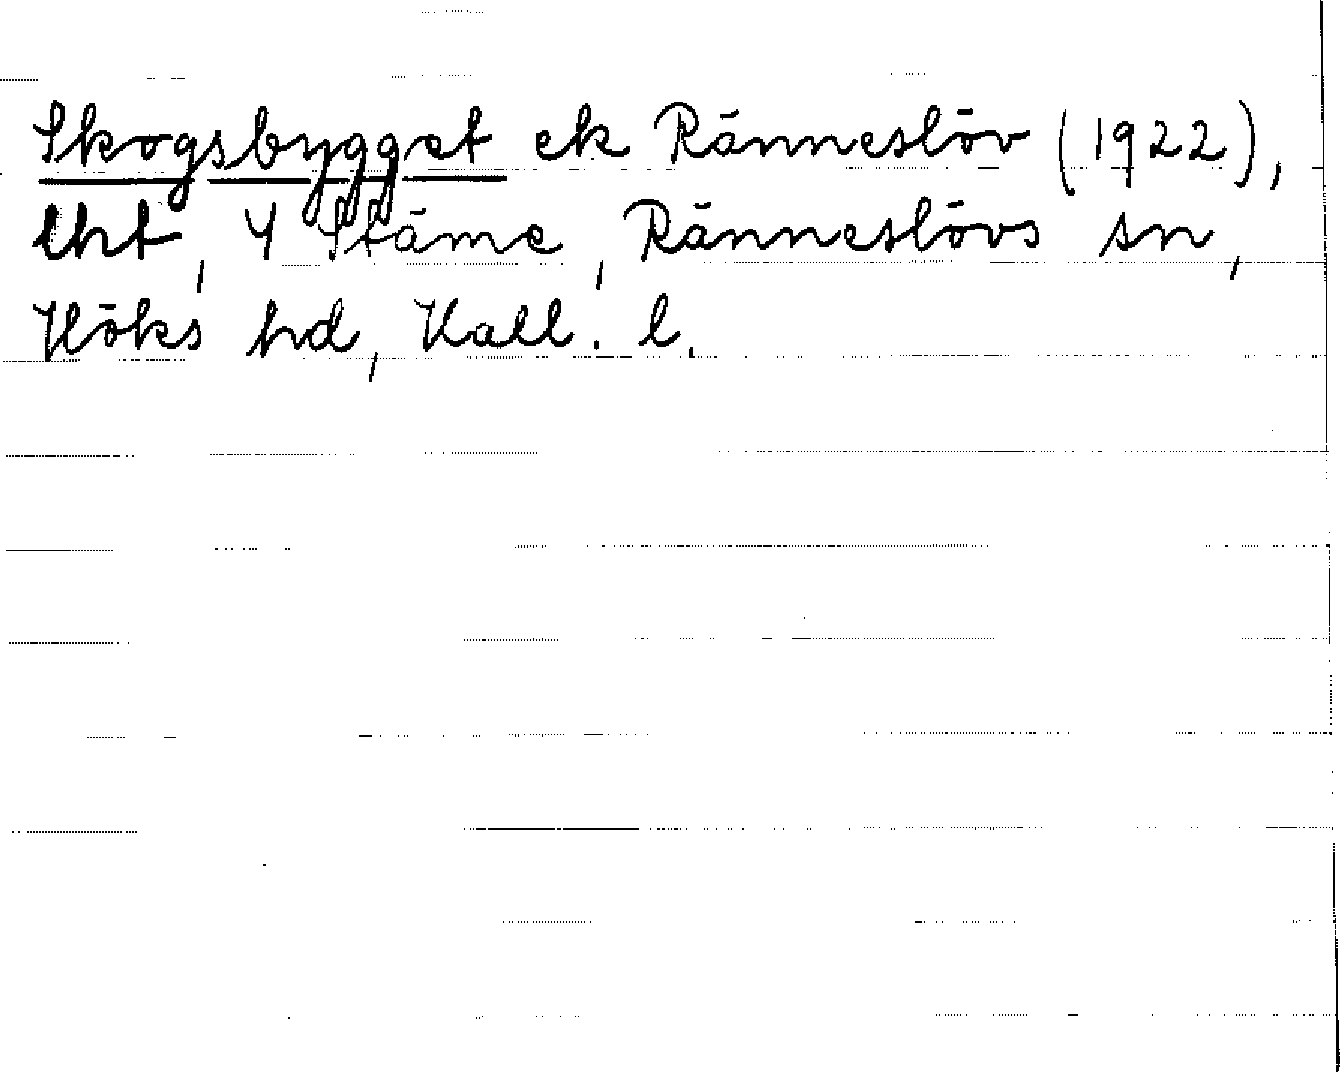 Skogsbygget ek Ränneslöv (1922),
lht, 4 Stäme, Ränneslövs sn,
Höks hd, Hall. l.